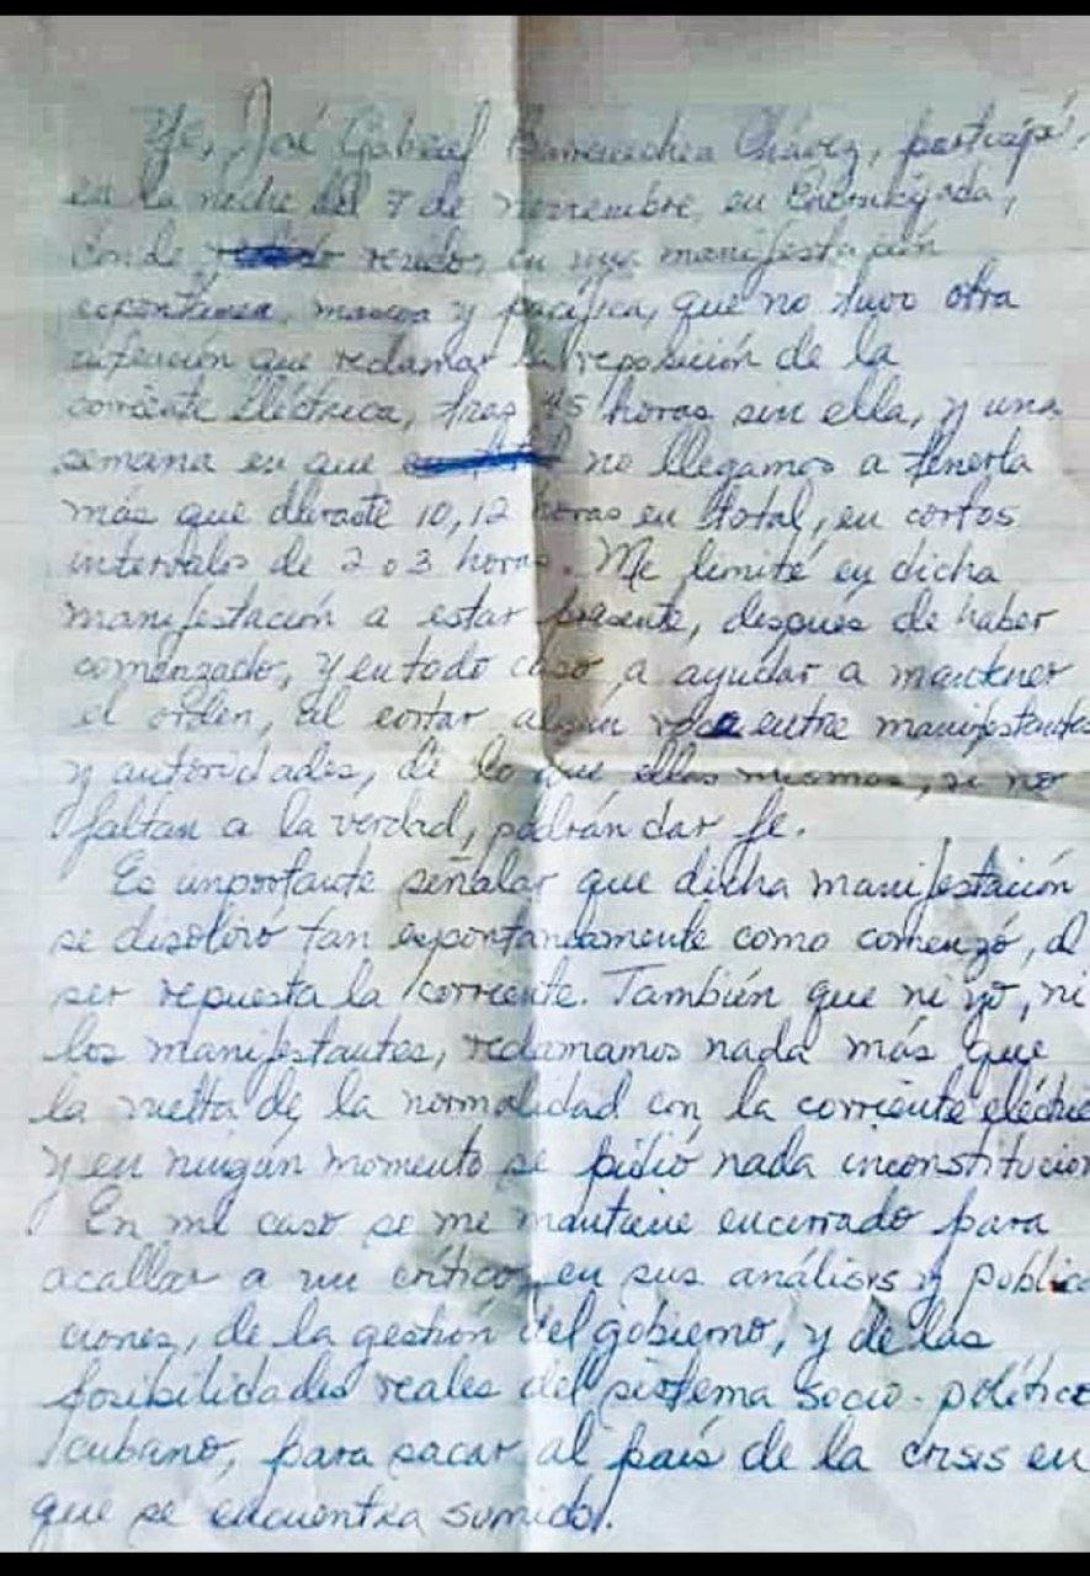 Yo, José Gabriel Barrenechea Chávez, participé,
en la noche del 7 de noviembre, en Encrucijada,
donde resido, en una manifestación
espontánea, mansa y pacífica, que no tuvo otra
intención que reclamar la reposición de la
corriente eléctrica, tras 45 horas sin ella, y una
semana en que no llegamos a tenerla
más que durante 10, 12 horas en total, en cortos
intervalos de 2 o 3 horas. Me limité en dicha
manifestación a estar presente, después de haber
comenzado, y en todo caso, a ayudar a mantener
el orden, al cortar algún roce entre manifestantes
y autoridades, de lo que ellos mismos, si no
faltan a la verdad, podrán dar fe.
Es importante señalar que dicha manifestación
se disolvió tan espontáneamente como comenzó, al
ser repuesta la corriente. También que ni yo, ni
los manifestantes, reclamamos nada más que
la vuelta de la normalidad con la corriente eléctric
y en ningún momento se pidió nada inconstitucion
En mi caso se me mantiene encerrado para
acallar a un crítico, en sus análisis y publica
ciones, de la gestión del gobierno, y de las
posibilidades reales del sistema socio-político
cubano, para sacar al país de la crisis en
que se encuentra sumido.